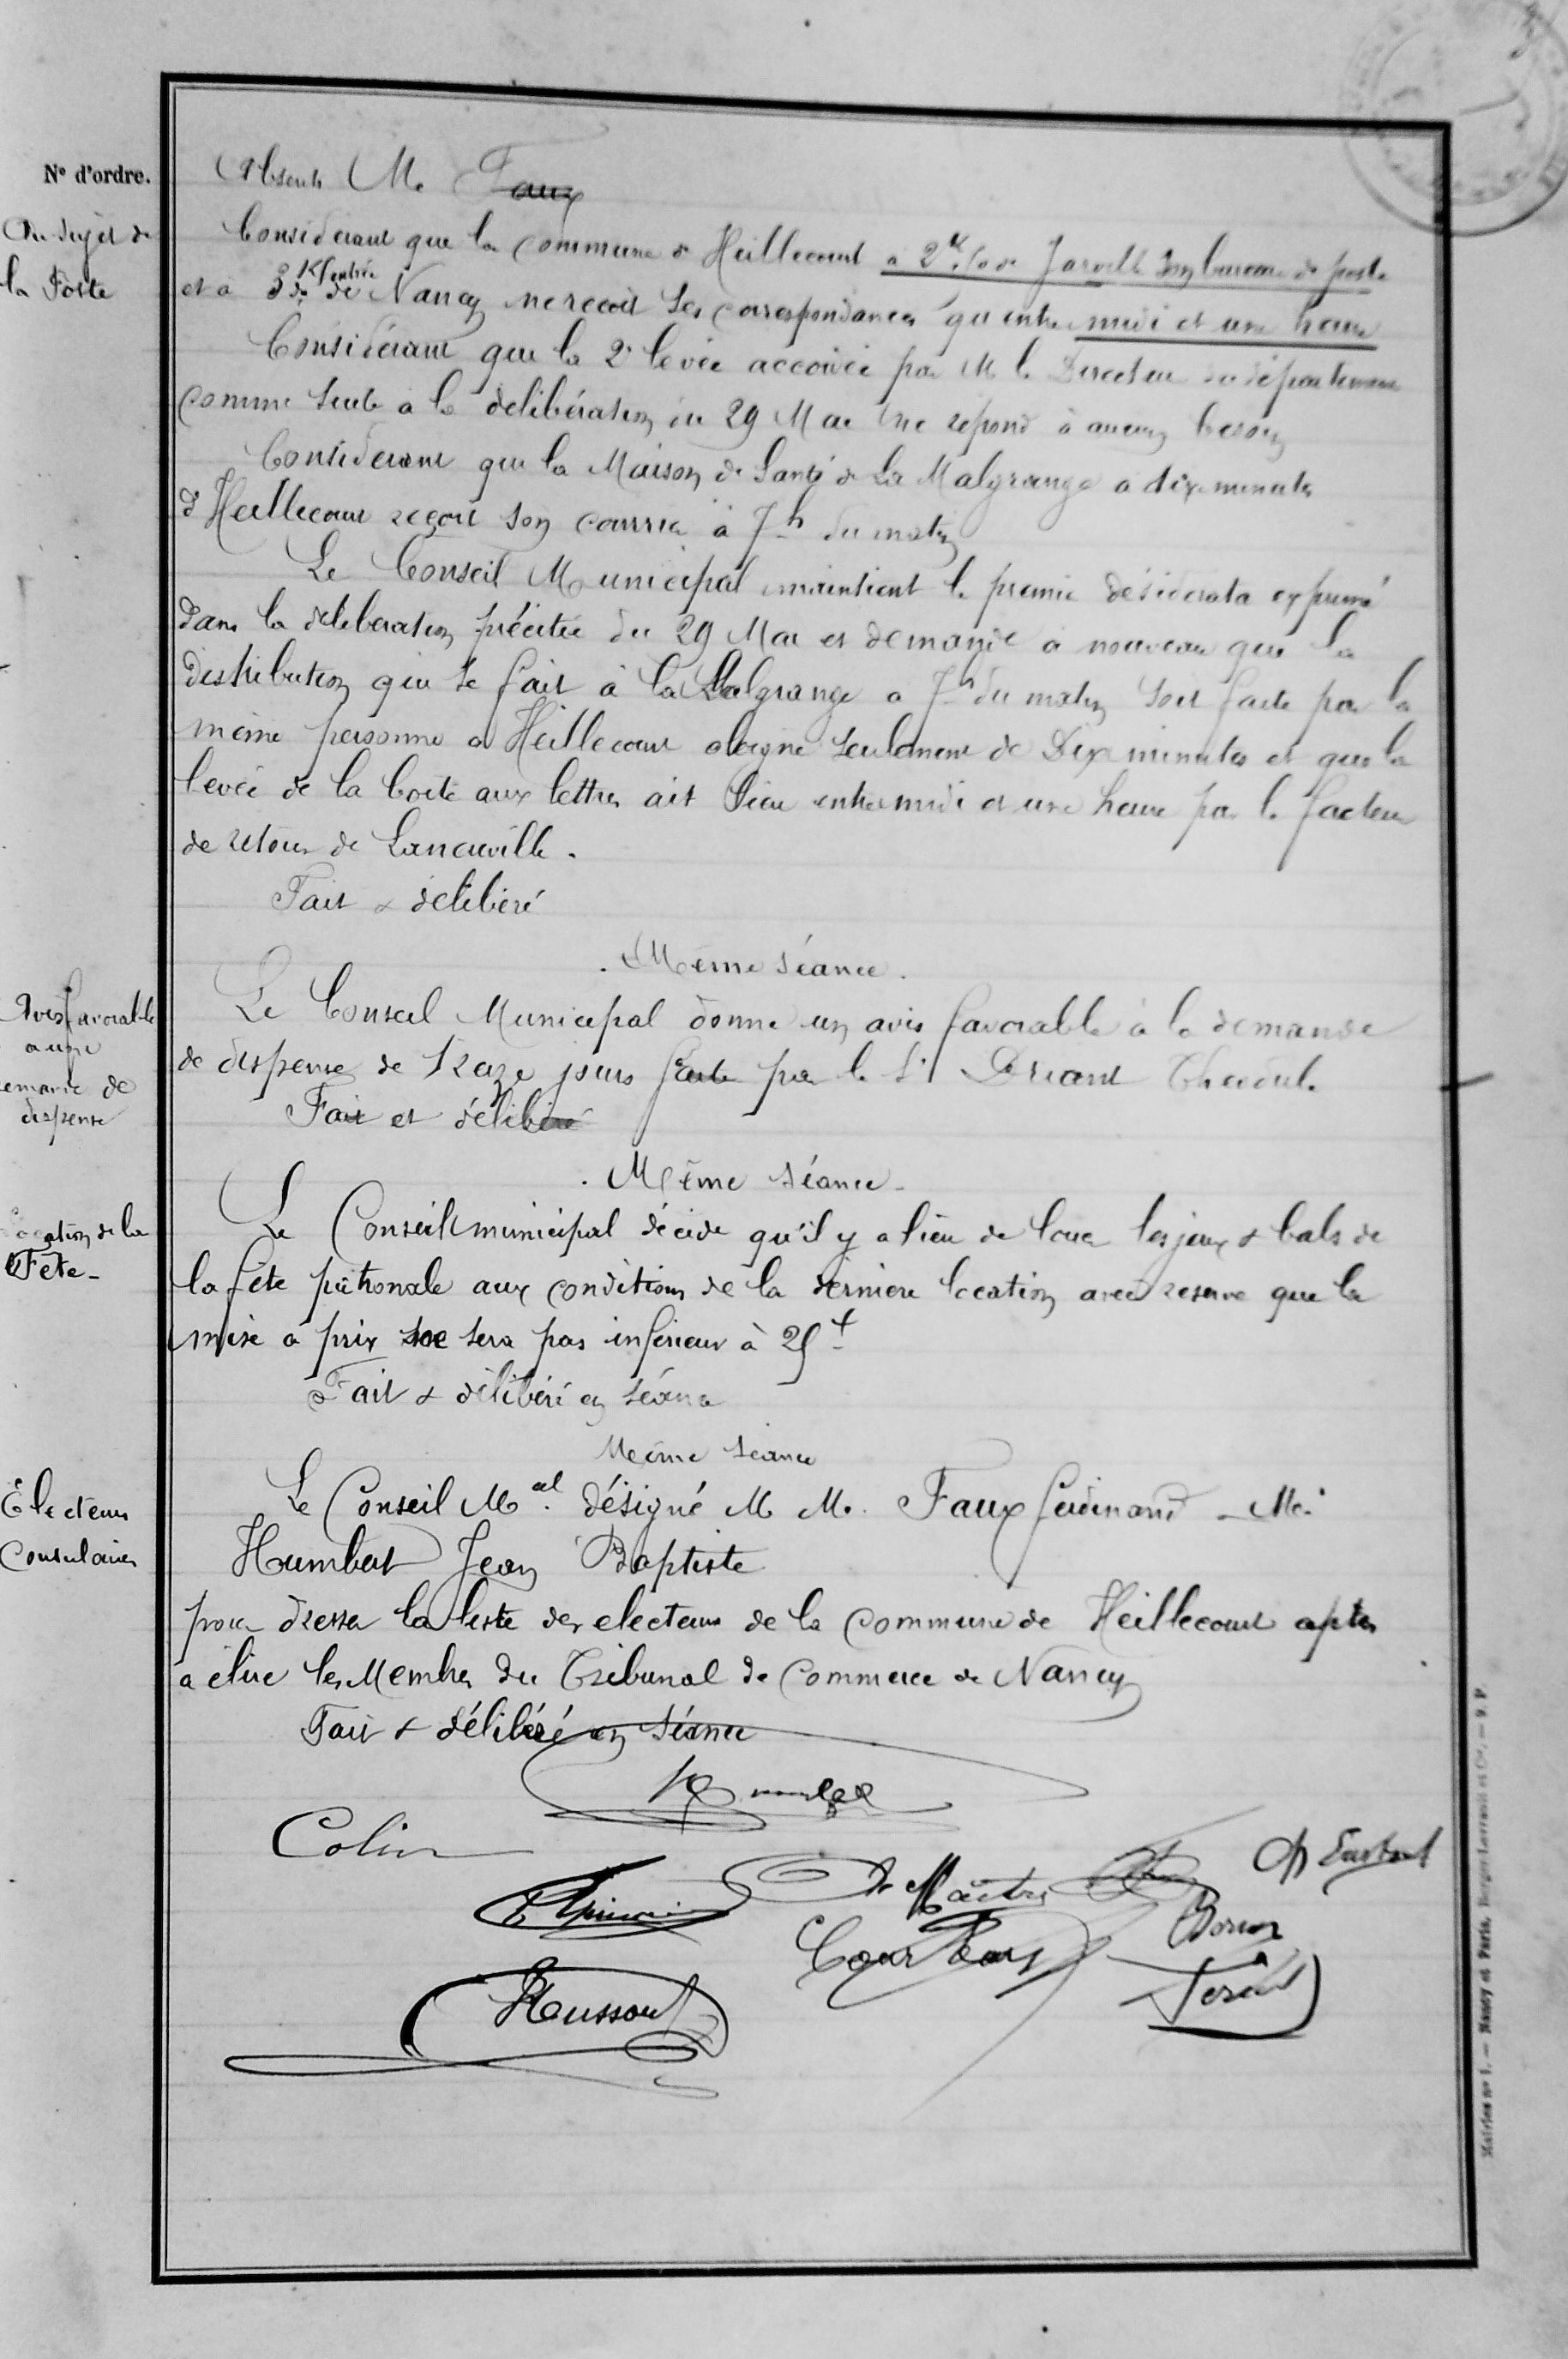 N° d'ordre.
Absents M. Faux
Au sujet de
la Poste
Considerant que la commune de Heillecourt a 2 K. /o de Jarville son bureau de poste
et a 3 K. de l'entrée de Nancy ne recoit ses correspondances qu'entre midi et une heure
Considérant que la 2e levée accordée par M le Directeur du département
comme suite a la delibération du 29 Mai ne répond à aucun besoin
Considerant que la Maison de Santé de La Malgrange a dix minutes
d'Heillecourt reçoit son courrier à 7h du matin
Le Conseil Municipal maintient le premier désiderata exprimé
dans la deliberation précitée du 29 Mai et demande a nouveau que la
distribution qui se fait à la Malgrange a 7h du matin soit faite par la
même personne a Heillecourt eloigné seulement de Dix minutes et que la
levée de la boite aux lettres ait lieu entre midi et une heure par le facteur
de retour de Laneuville.
Fait & délibéré
. Même séance .
Avis favorable
a une
demande de
dispense
Le Conseil Municipal donne un avis favorable à la demande
de dispense de treize jours faite par le Sr Driant Theodule
Fait et délibéré
. Même séance -
Location de la
Fête -
Le Conseil municipal décide qu'il y a lieu de louer les jeux & bals de
la fête patronale aux conditions de la derniere location avec reserve que la
mise a prix ne sera pas inférieur à 25 f
Fait & délibéré en séance
Même séance
Electeurs
Consulaires
Le Conseil Mal. désigné M M. Faux Ferdinand -
Humbert Jean Baptiste
pour dresser la liste des electeurs de la commune de Heillecourt aptes
a élire les Membres du Tribunal de Commerce de Nancy
Fait & délibéré en séance
Colin
Le Maître
Husson
Mairies n° 1. — Nancy et Paris, Berger-Levrault et Cie. — 9. P.